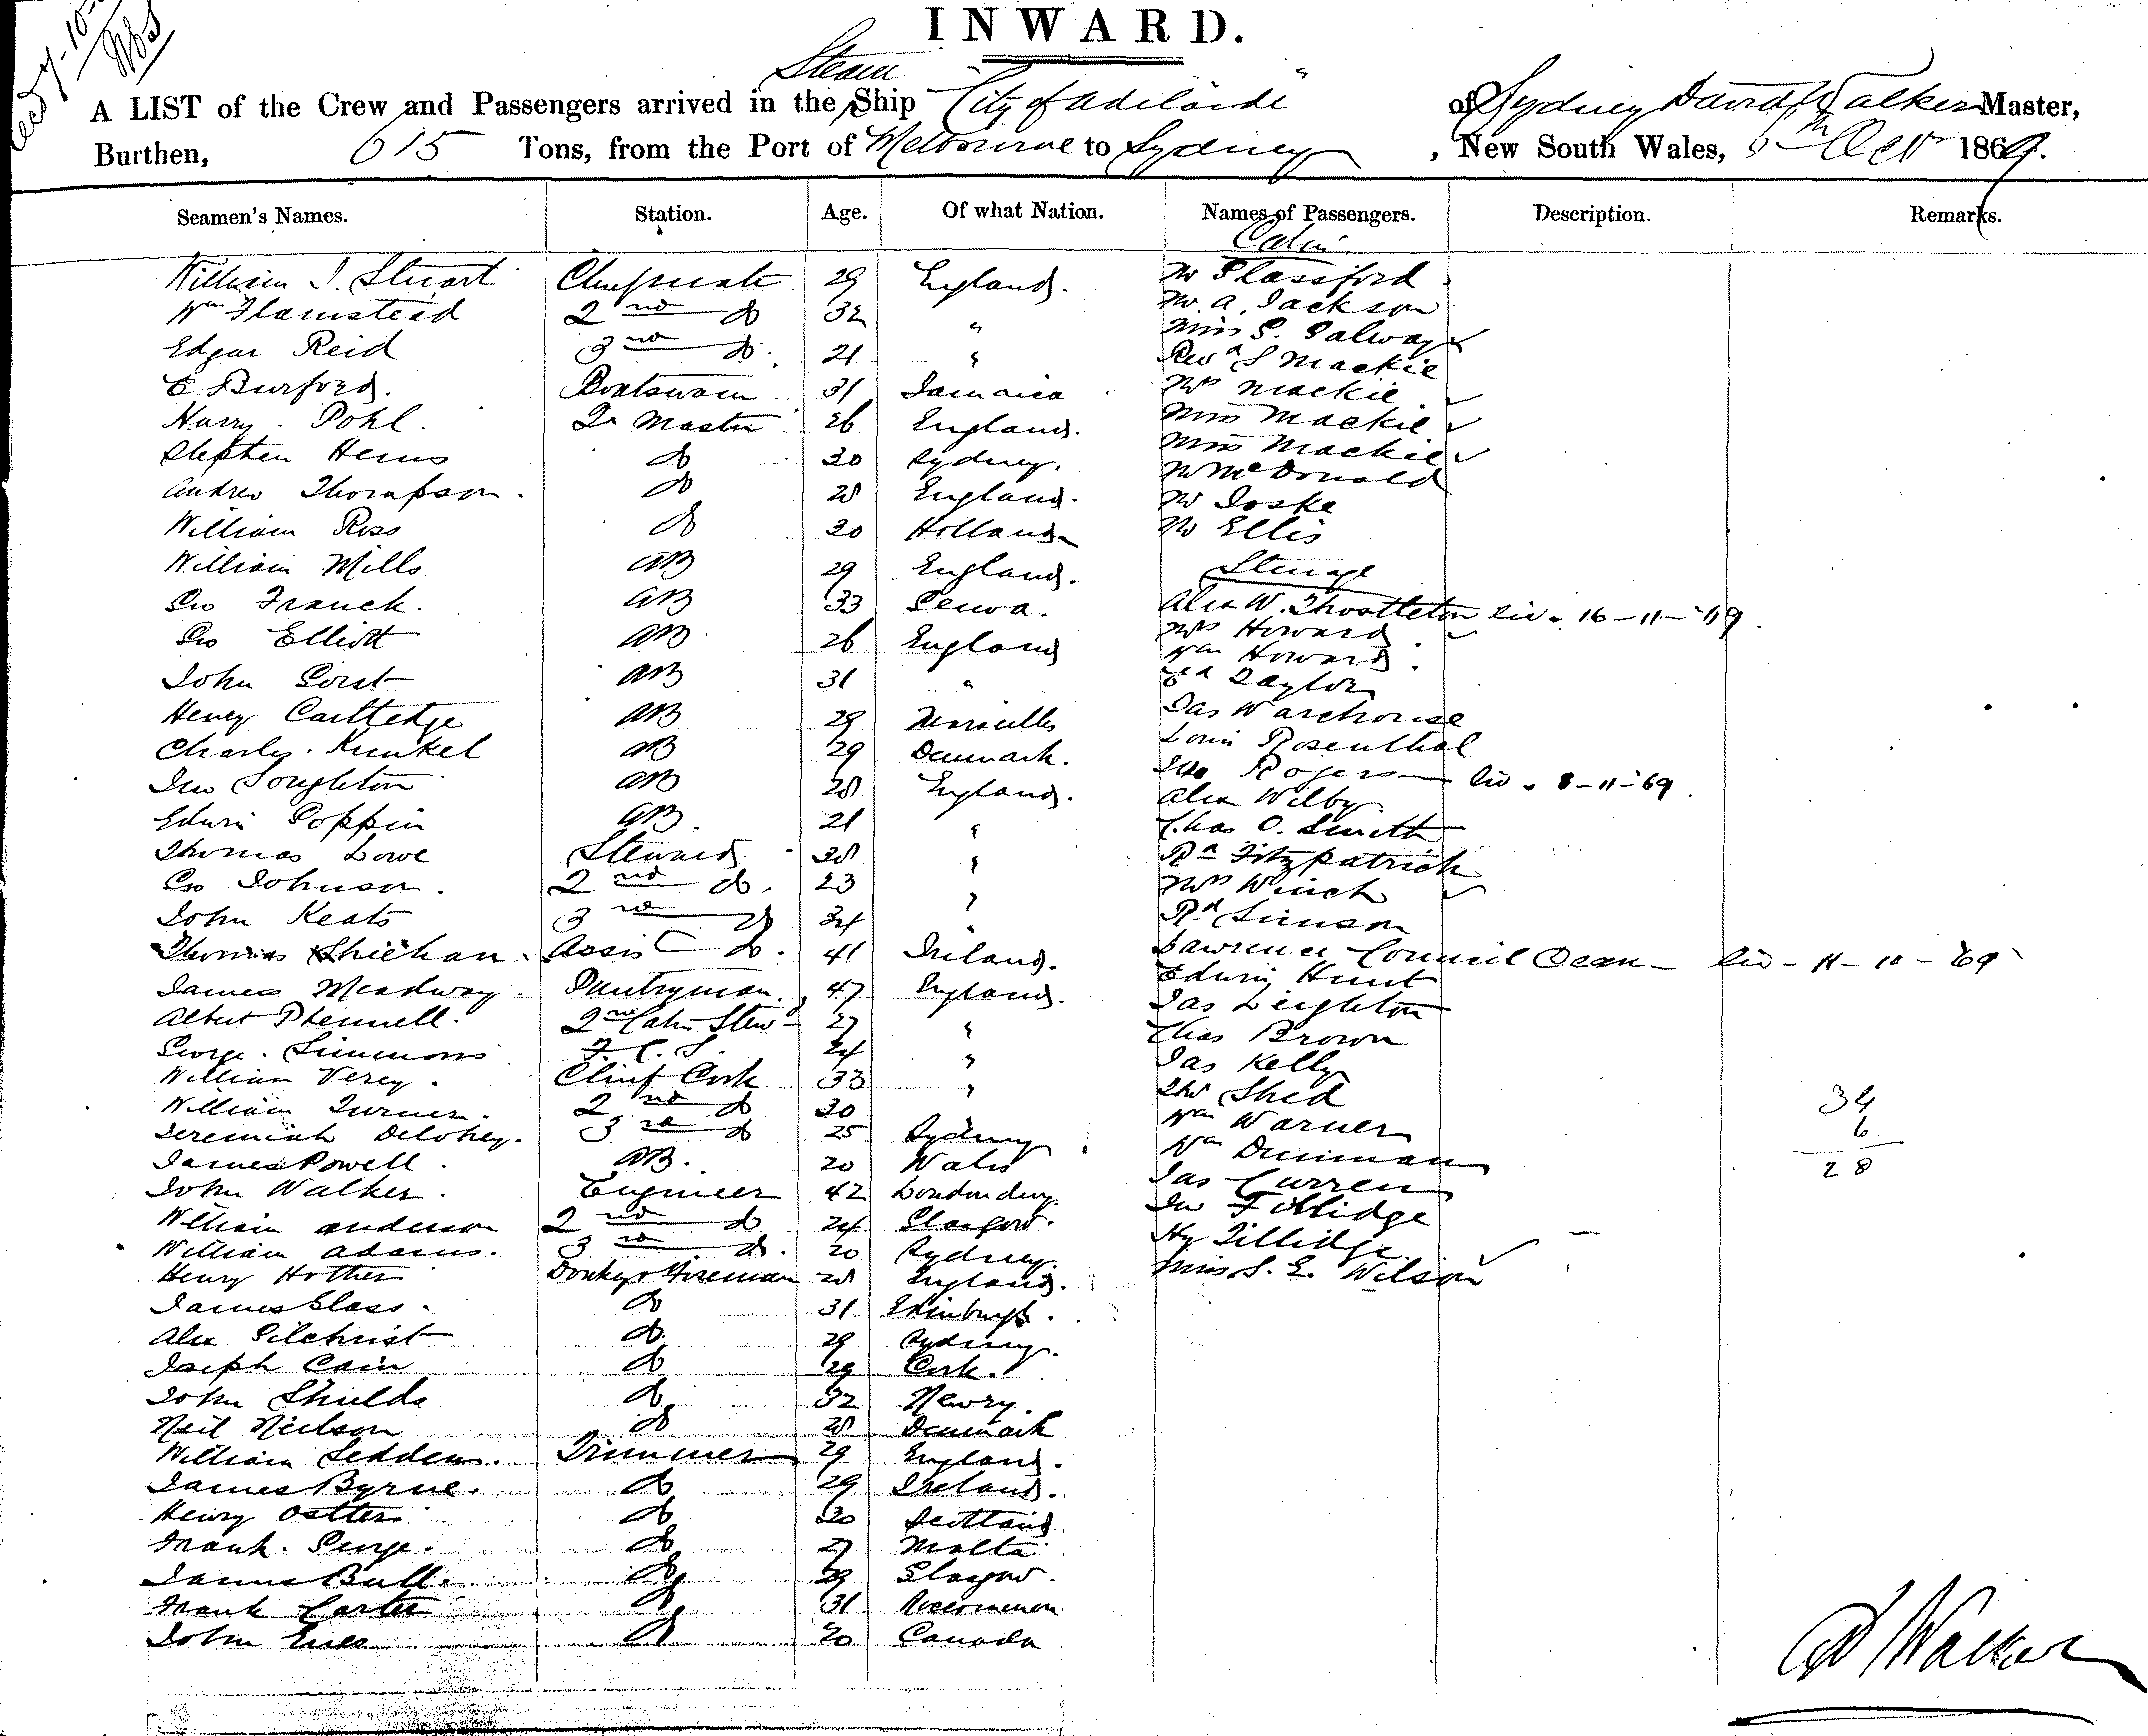 INWARD.
Steam
A LIST of the Crew and Passengers arrived in the Ship "City of Adelaide" of Sydney David Walker Master,
Burthen, 615 Tons, from the Port of Melbourne to Sydney, New South Wales, Octr 1869.
Seamen's Names. Station. Age. Of what Nation. Names of Passengers. Description. Remarks.
Cabin
William J. Stuart Chief mate 29 England. Mr Glassford
Wm Flamstead 2nd do 32 " Mr A. Jackson
Edgar Reid 3rd do. 21 " Miss G. Galway
E Burford. Boatswain 31 Jamaica Revd S Mackie
Mrs Mackie
Harry Pohl. Qr Master 26 England. Miss Mackie
Stephen Hems do 30 Sydney. Miss Mackie
Andrew Thompson. do 28 England. Mr McDonald
Mr Joske
William Ross do 30 Holland Mr Ellis
William Mills AB 29 England. Steerage
Geo Franck. AB 33 Genoa. Alex W. Throttleton liv. 16-11-'69.
Geo Elliott AB 26 England Mrs Howard
Wm Howard
John Gorst AB 31 " Ed Taylor
Henry Carttedge AB 29 Marseilles Jas Warehouse
Charly Kunkel AB 29 Denmark. Louis Rosenthal
Jno Soughton AB 28 England. Jno Rogers liv. 8-11-69.
Alex Wilby
Edwin Poppin AB. 21 " Chas O. Smith
Thomas Lowe Steward 38 " Rd Fitzpatrick
Geo Johnson. 2nd do. 23 " Mrs Winch
John Keats 3rd do 24 Rd Simson
Thomas Shiehan. Assist do. 41 Ireland. Lawrence Council Dean liv - 11-10-'69
James Meadway Pantryman. 47 England. Edwin Hunt
Jas Leighton
Albert Phennell. 2nd Cabin Stewd 27 " Chas Brown
George Simmons F. C. S 24 " Jas Kelly
William Verey. Chief Cook 33 " Jno Shed
William Turner. 2nd do 30 Wm Warner 34
Jeremiah Delohey. 3rd do 25 Sydney Wm Dunman 6
James Powell. AB. 20 Wales Jas Curren 28
John Walker. Engineer 42 Londonderry. Jno Tillidge
William Anderson 2nd do 24 Glasgow. Hy Tillidge
William Adams. 3rd do. 20 Sydney. Miss S. E. Wilson
Henry Hother Donkey & Fireman 28 England.
James Glass. do 31 Edinburgh.
Alex Gilchrist do. 29 Sydney.
Joseph Cain do 29 Cork.
John Shields do 32 Newry.
Neil Neilson do 28 Denmark
William Seddens. Trimmer 29 England.
James Byrne. do 29 Ireland.
Henry do 30 Scotland
Frank. George. do 27 Malta
James Bull. do 29 Glasgow.
Frank Carter do 31
John do 20 Canada
D Walker